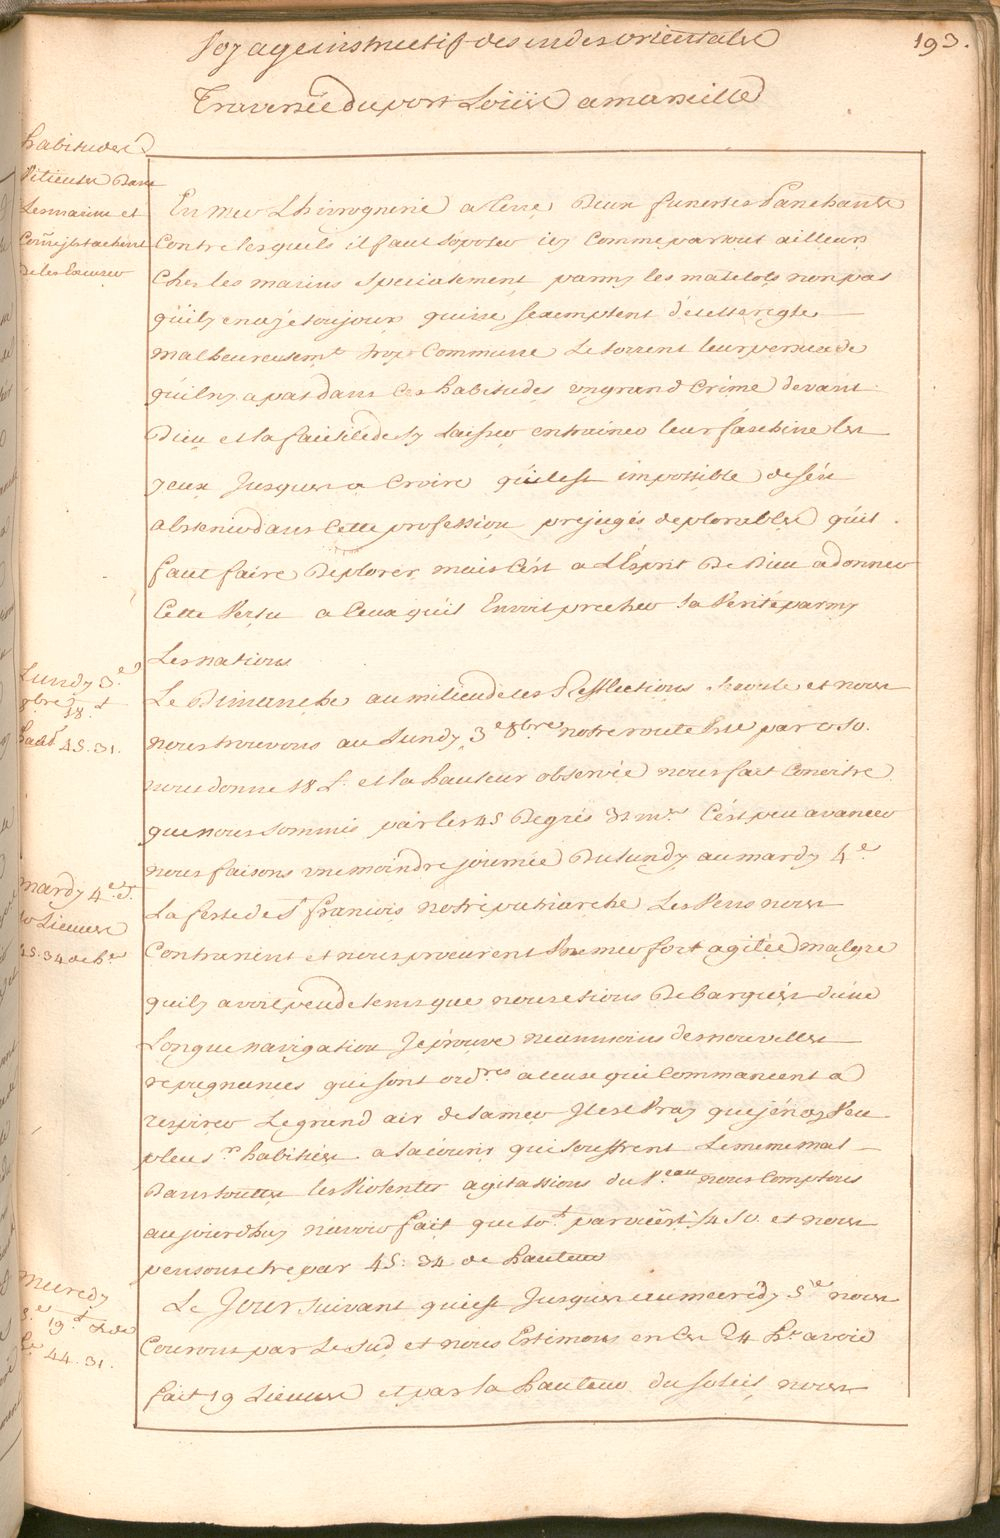 Voyage instructif des indes orientales
193.
Traversée du port Loüis a marseille
habitudes
Vitieuses Dans
Les marins et
Comẽ ils tachent
de les Excuser
En Mer L'hivrognerie a terre Deux funestes Panchants
Contre lesquels il faut s'oposer icy comme partout ailleurs
Ches les marins specialement parmy les matelots non pas
qu'il ny en aye toujours qui se s'exemptent de cette regle
malheureusemt trop Commune Le torrent leur persuade
qu'il ny a pas dans Ces habitudes un grand Crime devant
Dieu et la facilité de s'y laisser entrainer leur fascine les
yeux Jusques a Croire qu'il est impossible de s'en
abstenir dans Cette profession prejugés deplorables qu'il
faut faire Deplorer mais C'est a L'Esprit De Dieu a donner
Cette Vertu a Ceux qu'il Envoit precher sa Verité parmy
Les nations
Lundy 3.e
8bre 18. L
haut.r 45.31.
Le Dimanche au milieu de ces Reflections s'ecoule et nous
nous trouvons au Lundy 3e 8bre notre route Fue par O SO.
nous donne 18 L. et la hauteur observée nous fait Conoitre
que nous sommes par les 45 Degrés 31 m.es C'est peu avancer
nous faisons une moindre journée Du Lundy au mardy 4.e
mardy 4.e
10 Lieues
45.34 de h.r
La feste de St françois notre patriarche Les Vens nous
Contrarient et nous procurent Une mer fort agitée malgre
qu'il y avoit peu de tems que nous etions Debarqués d'une
Longue navigation J'eprouve neanmoins de nouvelles
repugnances qui sont ord.res a ceux qui Commancent a
respirer Le grand air de la mer Il est Vray que j'en ay Veu
plus.rs habitués a la courir qui souffrent Le meme mal
Dans toutes les Violentes agitassions du V.eau nous comptons
aujourdhuy n'avoir fait que 10.L par oüest 1/4 SO. et nous
pensons etre par 45:34 de hauteur
Mecredy
5.e 19.L de
h.r 44.31.
Le Jour suivant qui est Jusques au mecredy 5.e nous
Courons par Le sud et nous Estimons en les 24 h.es avoir
fait 19 Lieues et par la hauteur du soleil nous